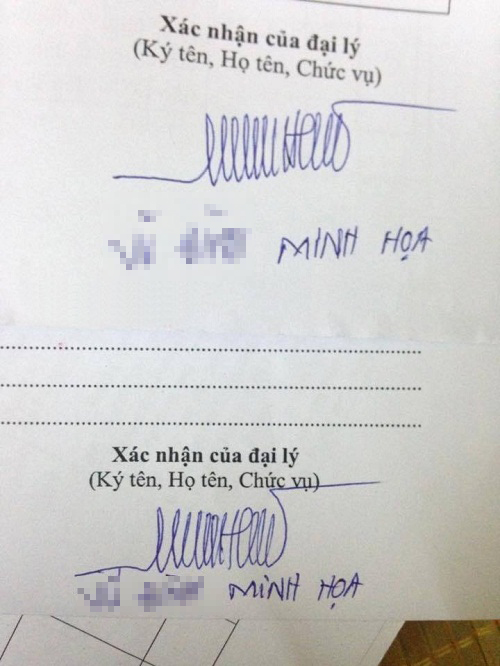 Xác nhận của đại lý
(Ký tên, Họ tên, Chức vụ)
MINH HỌA
Xác nhận của đại lý
(Ký tên, Họ tên, Chức vụ)
MINH HỌA